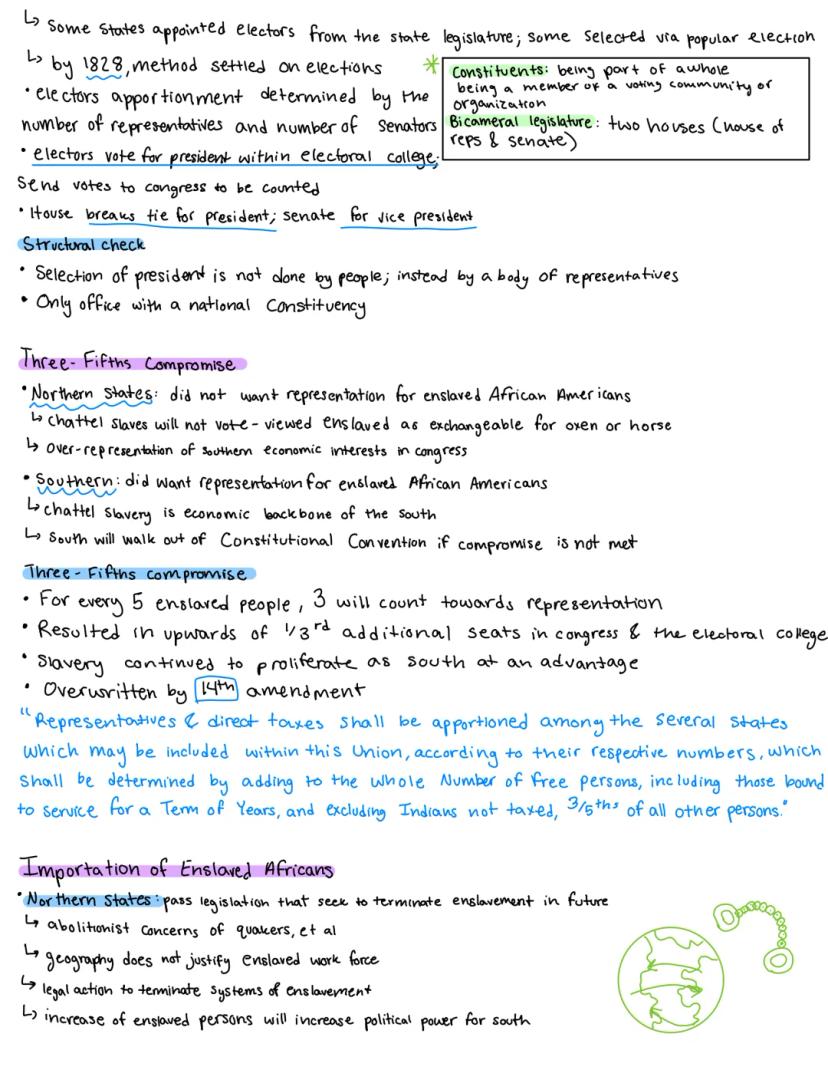 ↳ Some States appointed electors from the state legislature; some selected via popular election
↳ by 1828, method settled on elections
• electors apportionment determined by the
number of representatives and number of Senators
• electors vote for president within electoral college;
Send votes to congress to be counted
• House breaks tie for president; senate for vice president
* Constituents: being part of a whole
being a member of a voting community or
organization
Bicameral legislature: two houses (house of
reps & senate)
Structural check
• Selection of president is not done by people; instead by a body of representatives
• Only office with a national Constituency
Three-Fifths Compromise
• Northern States: did not want representation for enslaved African Americans
↳ chattel slaves will not vote - viewed enslaved as exchangeable for oxen or horse
↳ over-representation of southern economic interests in congress
• Southern: did want representation for enslaved African Americans
↳ chattel slavery is economic backbone of the south
↳ South will walk out of Constitutional Convention if compromise is not met
Three-Fifths compromise
• For every 5 enslaved people, 3 will count towards representation
• Resulted in upwards of 1/3rd additional seats in congress & the electoral college
• Slavery continued to proliferate as south at an advantage
• Overwritten by 14th amendment
"Representatives & direct taxes shall be apportioned among the several states
which may be included within this Union, according to their respective numbers, which
shall be determined by adding to the whole Number of free persons, including those bound
to service for a Term of Years, and excluding Indians not taxed, 3/5ths of all other persons."
Importation of Enslaved Africans
• Northern States: pass legislation that seek to terminate enslavement in future
↳ abolitionist concerns of quakers, et al
↳ geography does not justify enslaved work force
↳ legal action to terminate systems of enslavement
↳ increase of enslaved persons will increase political power for south